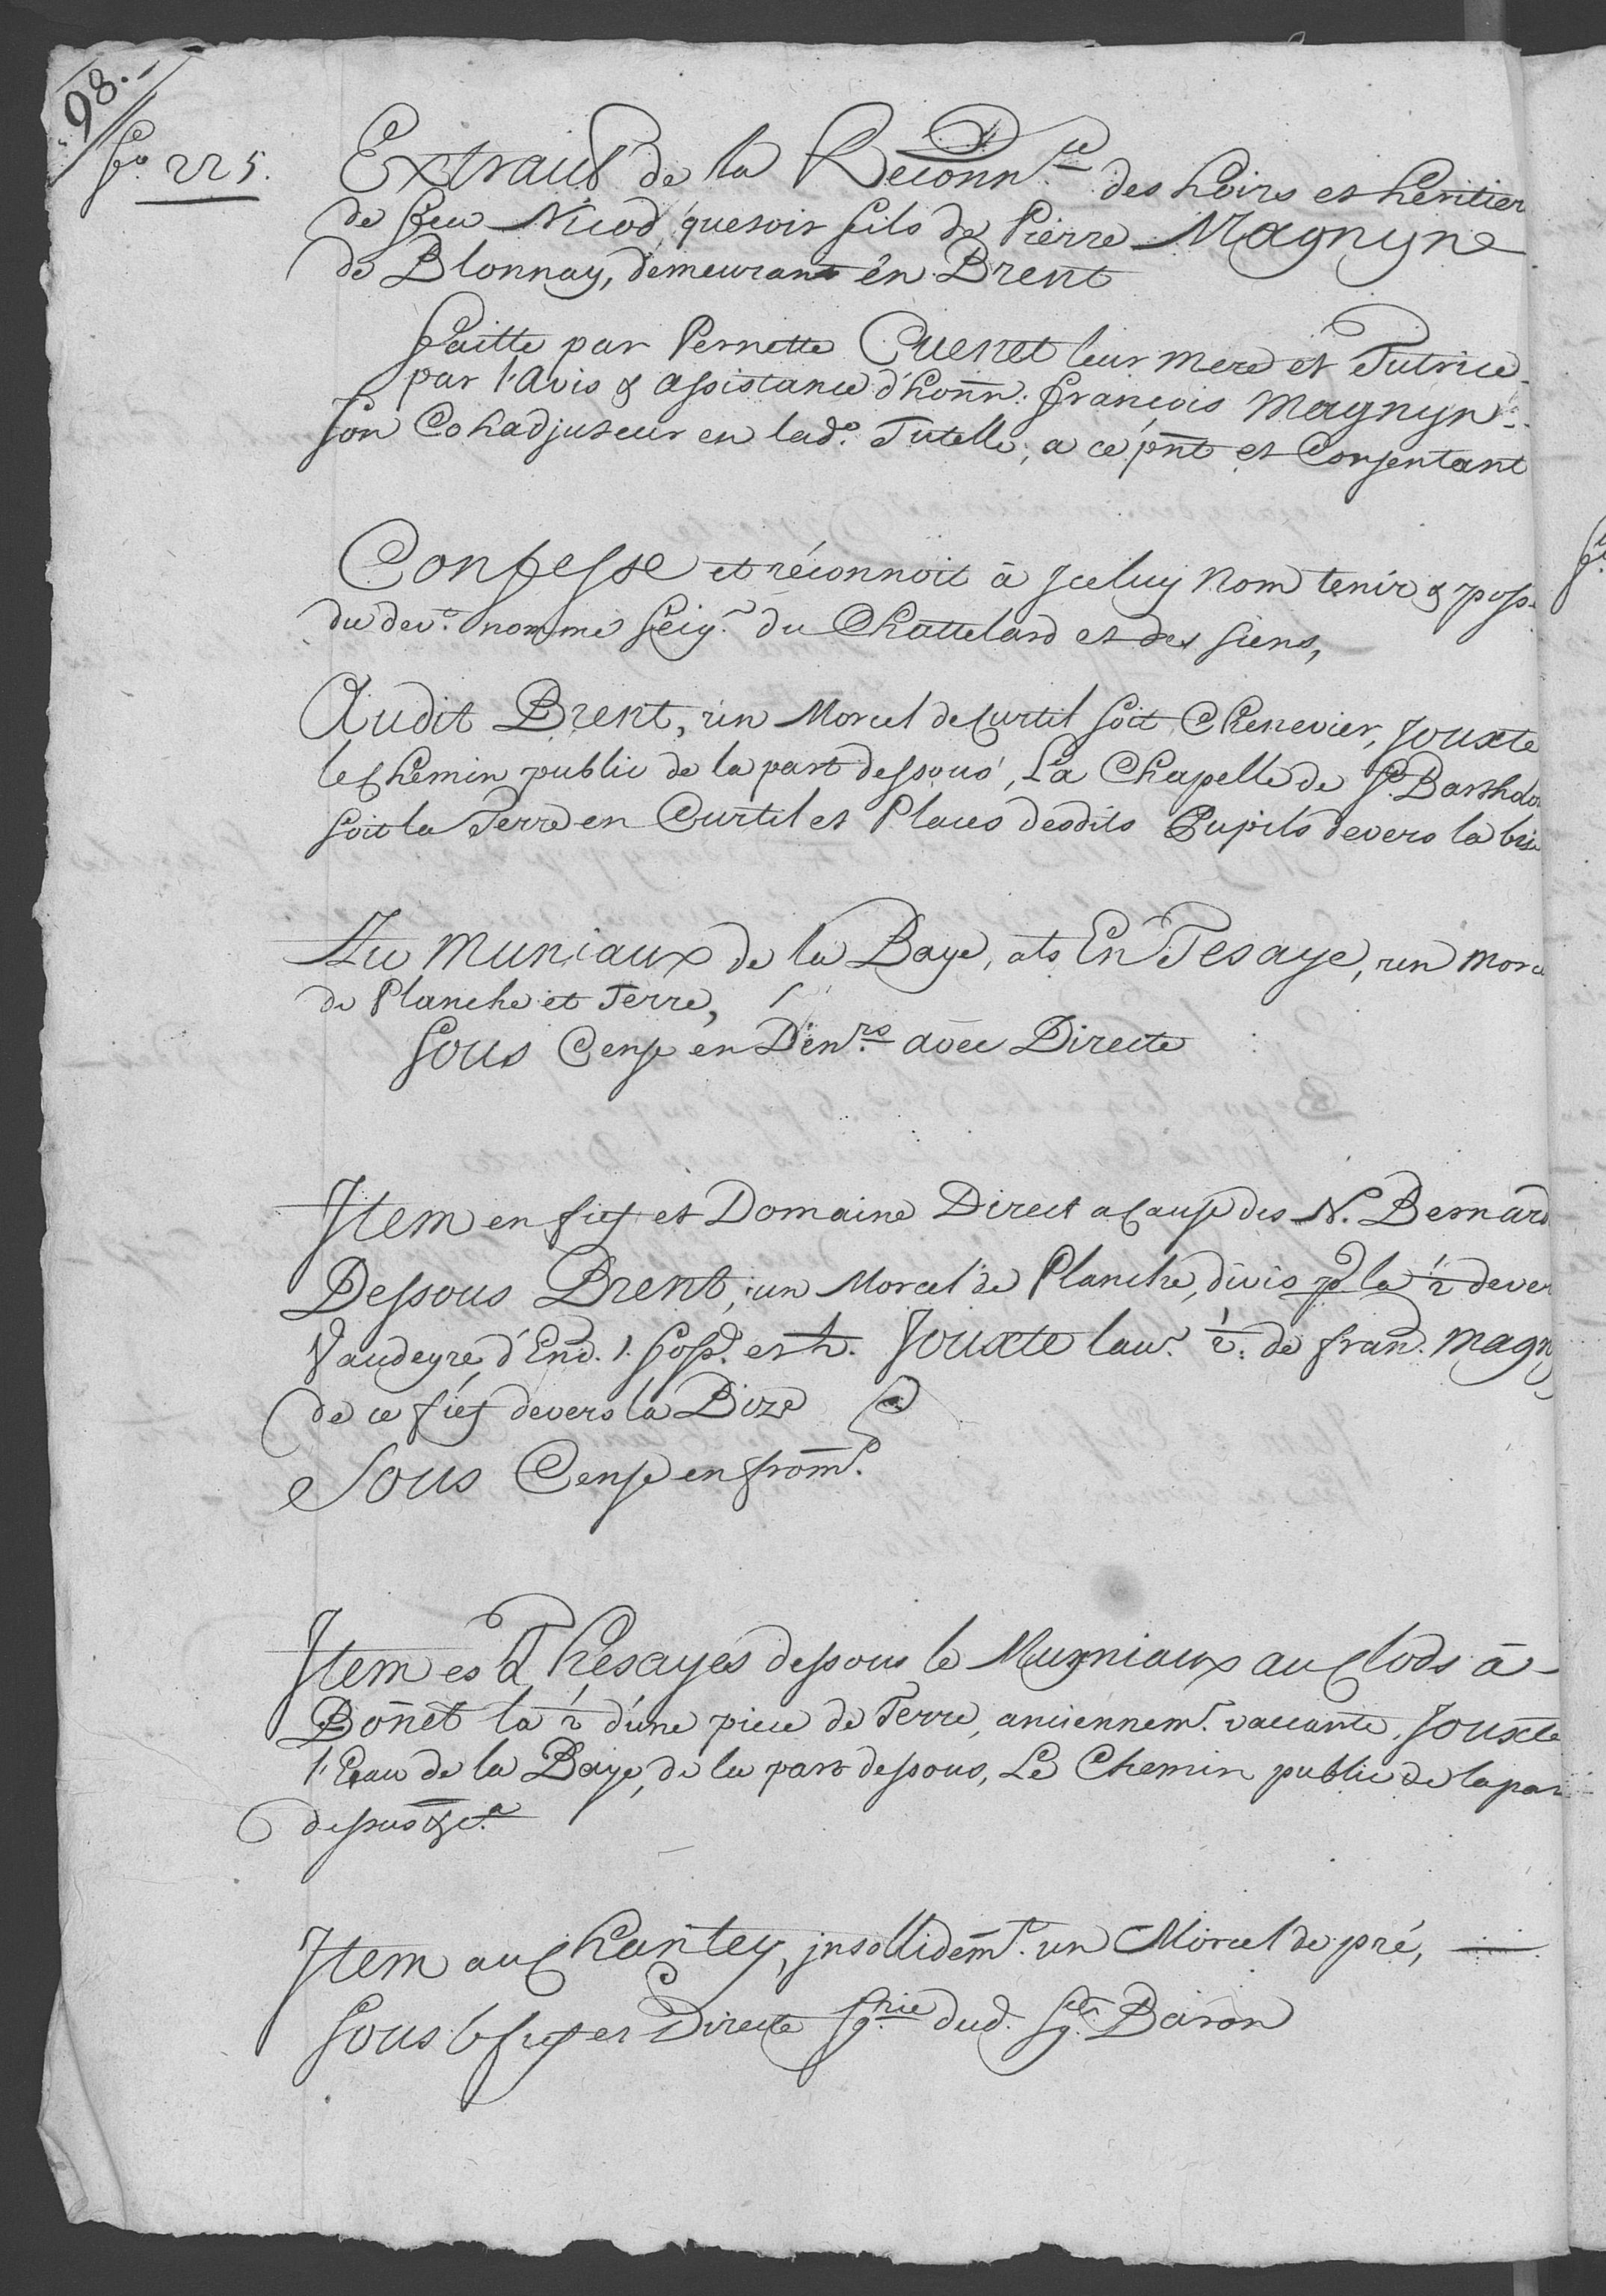 98.
fo. 225.
Extrait de la Reconn.ce des hoirs et heritier
de feu Nicod, quesoir fils de Pierre Magnyn
de Blonnay, demeurant en Brent
faitte par Pernette Cuenet leur mere et Tutrice
par l'avis & assistance d'honn: François Magnyn
son Cohadjuteur en lad.e Tutelle, a ce pnt et Consentant
Confesse et réconnoit à jceluy nom tenir & poss
du dev.t nommé seig.r du Chattelard et des siens,
Audit Brent, un Morcel de Curtil soit Chenevier, jouxte
le Chemin public de la part dessous, La Chapelle de St. Barthelo
soit la Terre en Curtil et Places desdits Pupils devers la bis
Au Muniaux de la Baye, als En Tesaye, un morc
de Planche et Terre,
sous Cense en Den.rs avec Directe
Item en fief et Domaine Direct a cause des N. Bernard
Dessous Brent, un Morcel de Planche, divis p la ½ dever
Vaudeyre d'End. 1. foss. et h. Jouxte l'au.e ½ de fran. Magn
de ce fief devers la Bize
Sous Cense en from.t
Item es Thesayes dessous le Mugniaux au Clods à
Bonet la ½ d'une piece de Terre, anciennem.t vaccante, Jouxte
l'Eau de la Baye, de la part dessous, Le Chemin public de la par
dessus &c.a
Item au Chantey, jnsollidem.t un Morcel de pré,
sous le fief et Directe sg.rie dud. Sg.r Baron